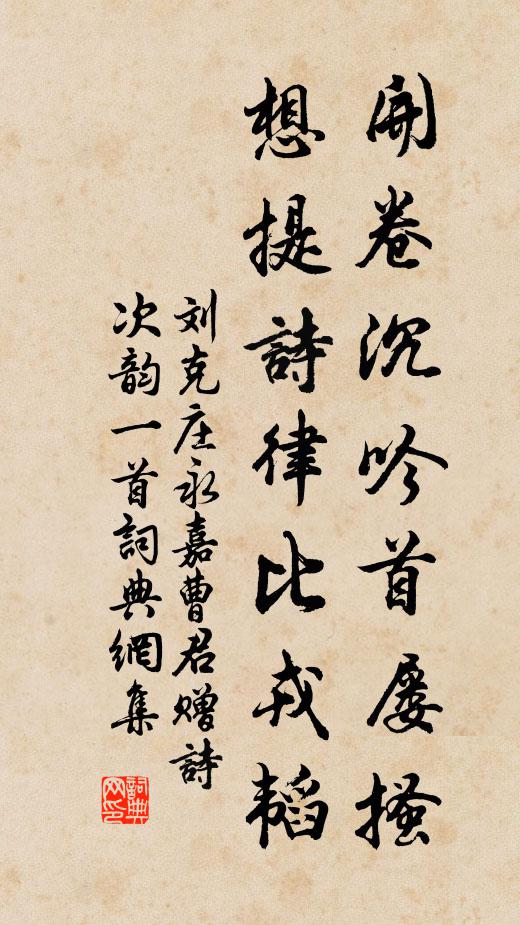 開卷沉吟首屡搔
想提詩律比戎韬
刘克庄永嘉曹君赠詩
次韵一首詞典網集
詞典
网印